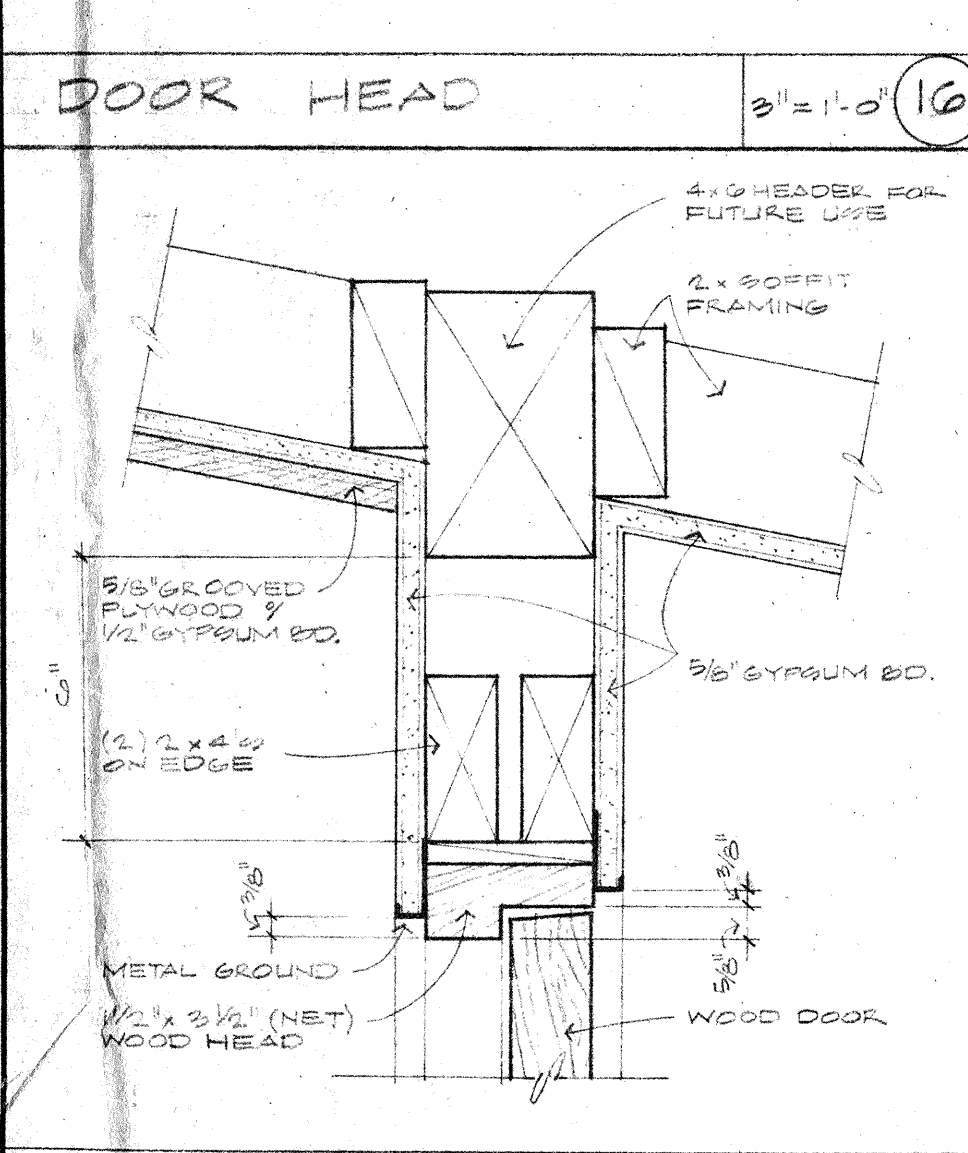 DOOR HEAD
3" = 1'-0"
16
4 x 6 HEADER FOR
FUTURE USE
2 x SOFFIT
FRAMING
5/8" GROOVED
PLYWOOD %
1/2" GYPSUM BD.
6"
5/8" GYPSUM BD.
(2) 2 x 4'S
ON EDGE
3/8"
3/8"
5/8"
METAL GROUND
1 1/2" x 3 1/2" (NET)
WOOD HEAD
WOOD DOOR